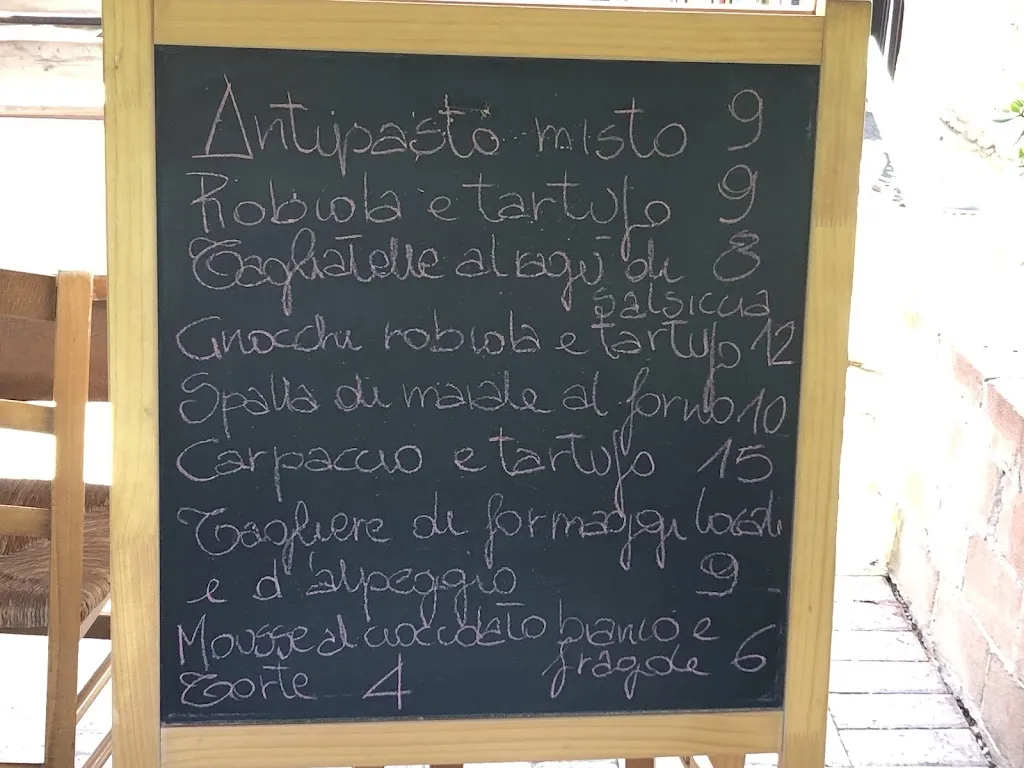 Antipasto misto 9
Robiola e tartufo 9
Tagliatelle al ragù di 8
salsiccia
Gnocchi robiola e tartufo 12
Spalla di maiale al forno 10
Carpaccio e tartufo 15
Tagliere di formaggi locali
e d'alpeggio 9
Mousse al cioccolato bianco e
fragole 6
Torte 4